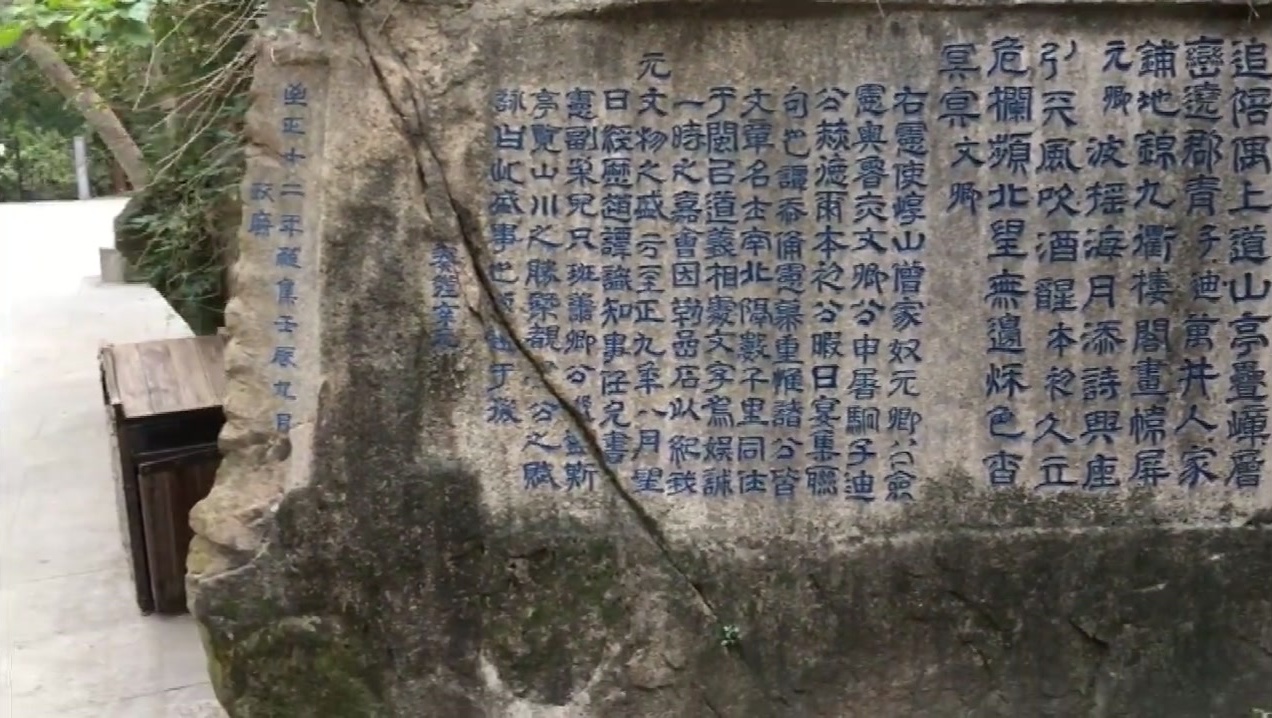 追陪偶上道山亭疊嶂層
巒遶郡青子迪萬井人家
鋪地錦九衢樓閣畫幛屏
元卿波摇海月添詩興座
引天風吹酒醒本初久立
危欄頻北望無邊秌色杳
冥冥文卿
右憲使惇山僧家奴元卿公僉
憲奥魯赤文卿公申屠駉子迪
公赫德爾本初公暇日宴集聯
句也譚忝僃憲幕重惟諸公皆
文章名士南北隔數千里同仕
于閩台道義相處文字爲娱誠
一時之嘉會因勒嵓石以紀我
元文物之盛云至正九年八月望
日經歷趙譚識知事任允書
憲副朶兒只班善卿公斯
亭覧山川之勝槩覩公之賦
詠此盛事也于
至正十二年集壬辰九月